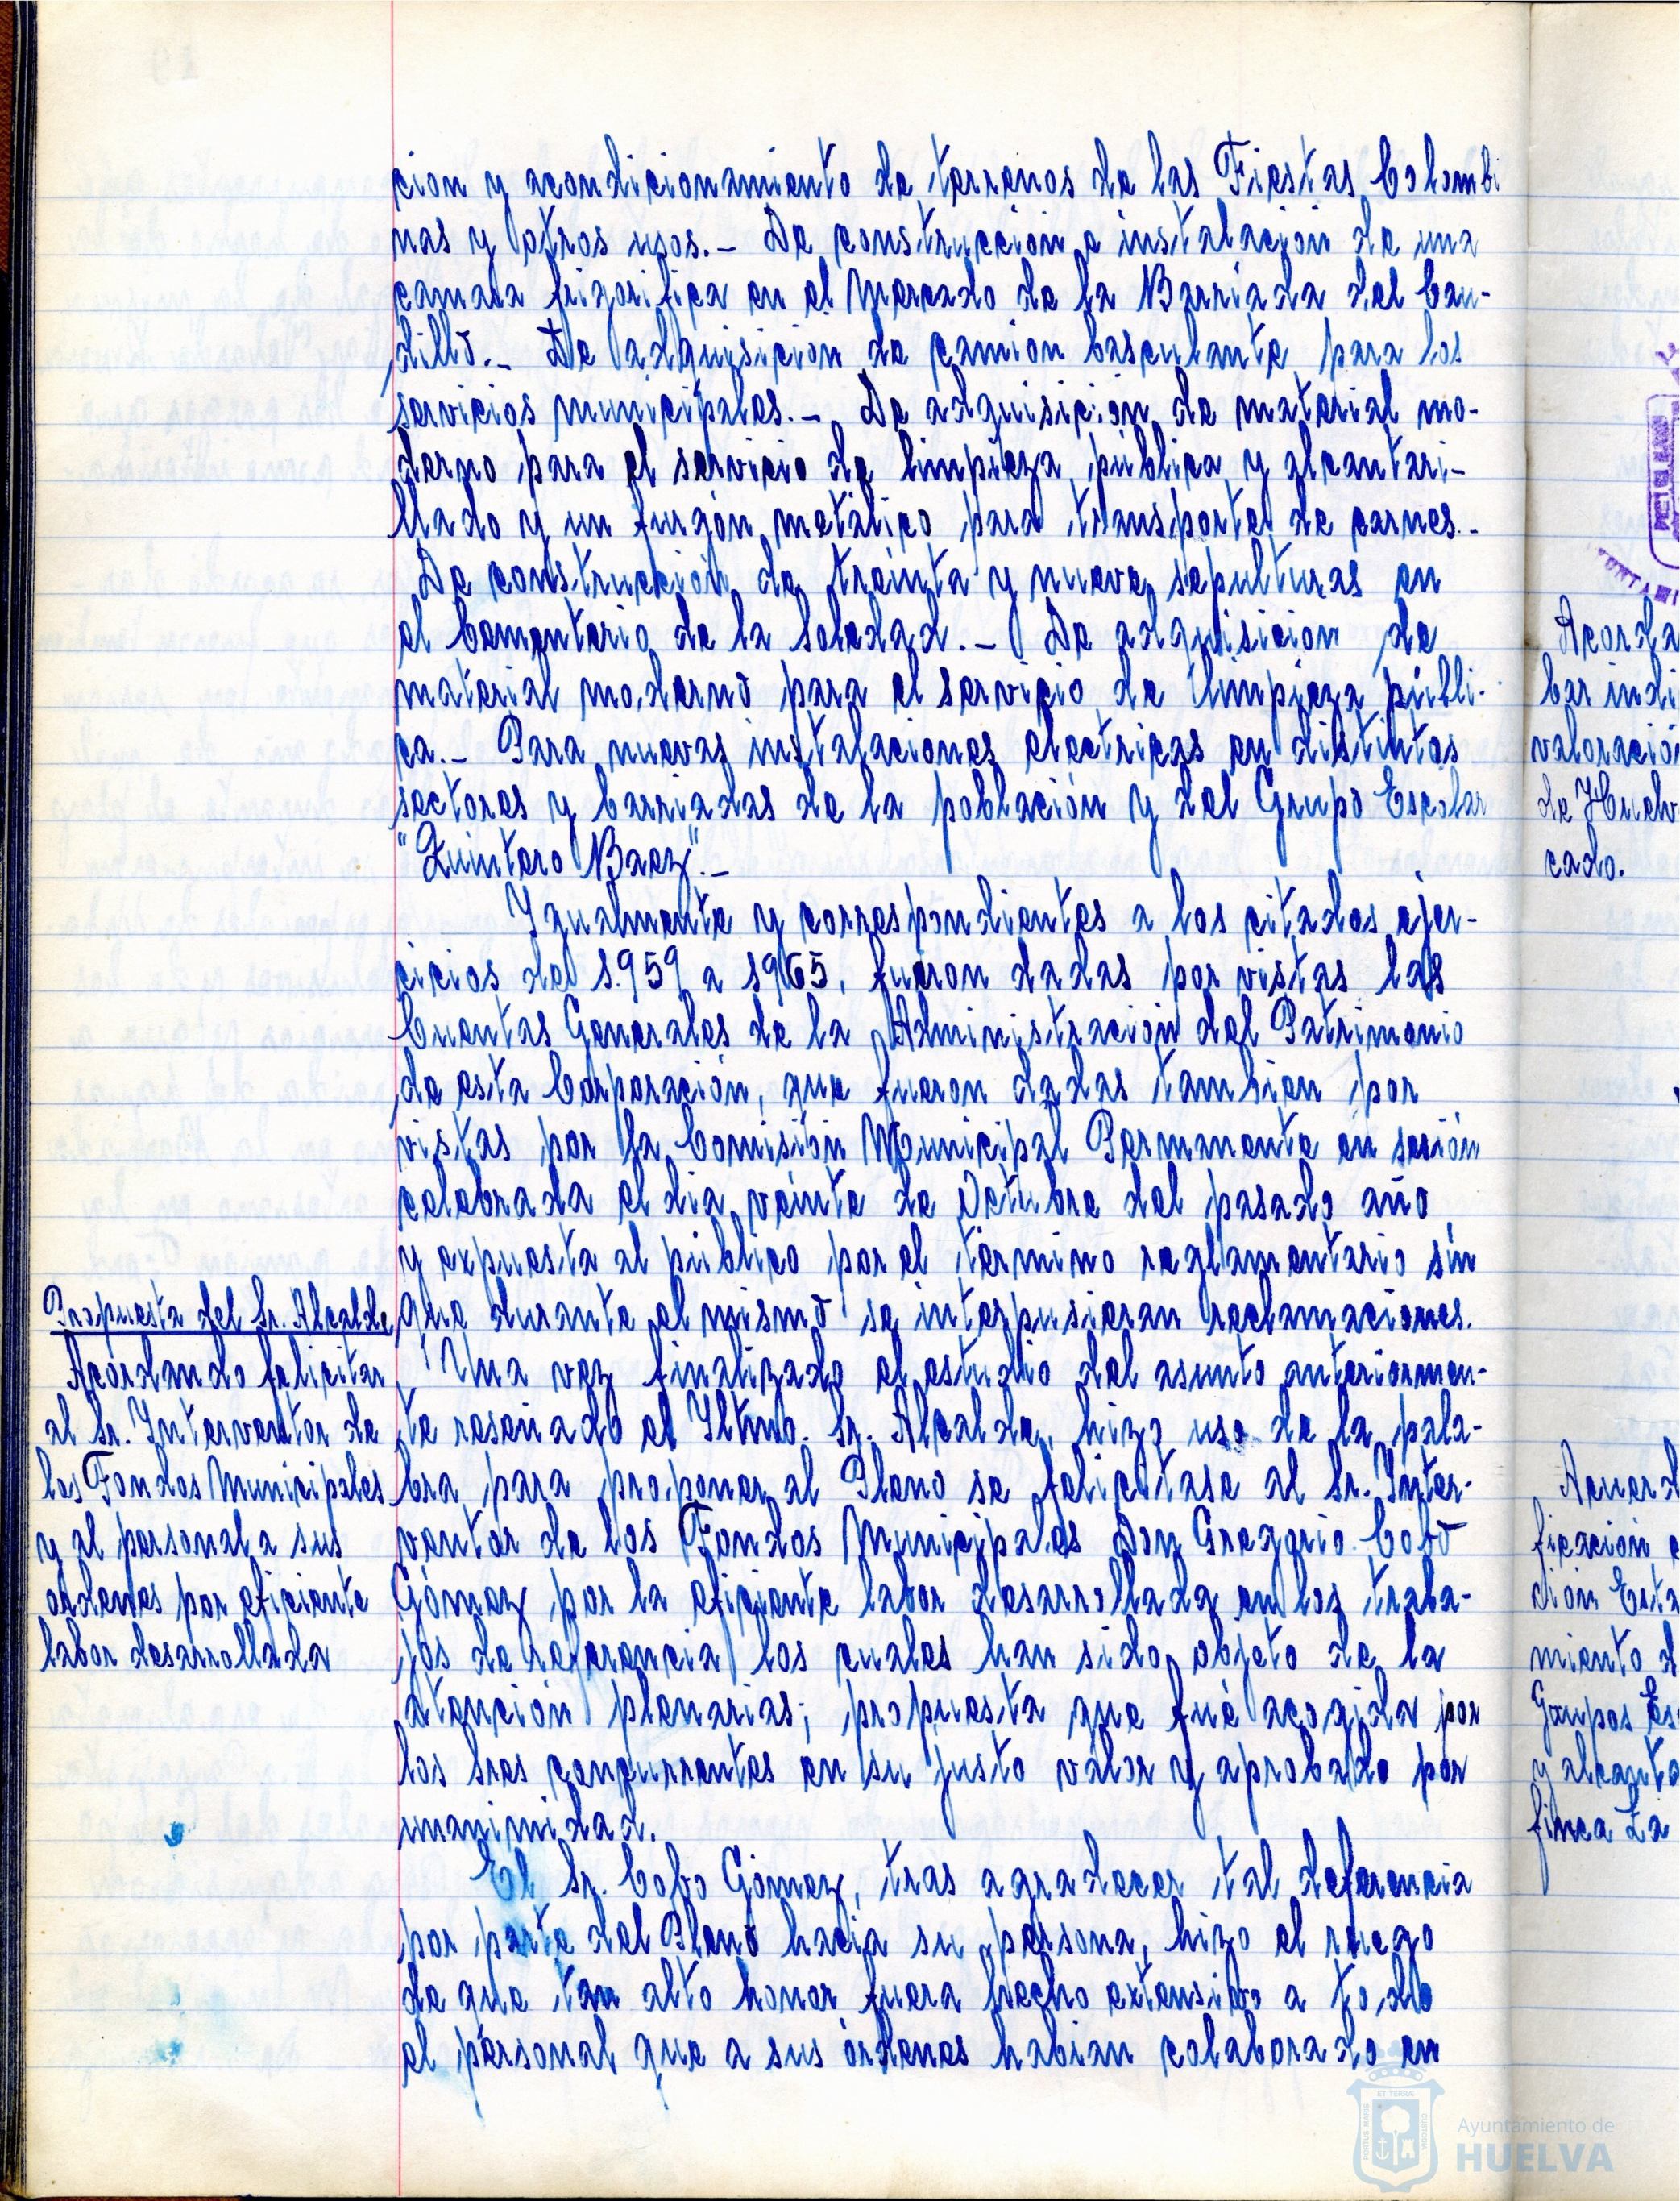 cion y acondicionamiento de terrenos de las Fiestas Colombi
nas y otros usos.- De construccion e instalación de una
camara frigorifica en el Mercado de la Barriada del Cau-
dillo.- De adquisicion de camion basculante para los
servicios municipales.- De adquisición de material mo-
derno para el servicio de limpieza pública y alcantari-
llado y un furgón metálico para transporte de carnes.-
De construcción de treinta y nueve sepulturas en
el Cementerio de la Soledad.- De adquisicion de
material moderno para el servicio de limpieza públi-
ca.- Para nuevas instalaciones electricas en distintos
sectores y barriadas de la población y del Grupo Escolar
"Quintero Baez".-
Igualmente y correspondientes a los citados ejer-
cicios de 1.959 a 1965, fueron dadas por vistas las
Cuentas Generales de la Administración del Patrimonio
de esta Corporación, que fueron dadas tambien por
vistas por la Comisión Municipal Permanente en sesión
celebrada el dia veinte de Octubre del pasado año
y expuesta al público por el término reglamentario sin
que durante el mismo se interpusieran reclamaciones.
Propuesta del Sr. Alcalde
Acordando felicitar
al Sr. Interventor de
los Fondos Municipales
y al personal a sus
ordenes por eficiente
labor desarrollada
Una vez finalizado el estudio del asunto anteriormen-
te reseñado el Iltmo. Sr. Alcalde, hizo uso de la pala-
bra para proponer al Pleno se felicitase al Sr. Inter-
ventor de los Fondos Municipales Don Gregorio Cobo
Gómez por la eficiente labor desarrollada en los traba-
jos de referencia los cuales han sido objeto de la
atención plenarias; propuesta que fué acogida por
los sres concurrentes en su justo valor y aprobado por
unanimidad.
El Sr. Cobo Gómez, tras agradecer tal deferencia
por parte del Pleno hacia su persona, hizo el ruego
de que tan alto honor fuera hecho extensivo a todo
el personal que a sus órdenes habian colaborado en
Acorda
bar indi
valoración
de Huelv
cado.
Acuerd
ficación
dión Esta
miento d
Grupos Es
y alcanta
finca La
Ayuntamiento de
HUELVA